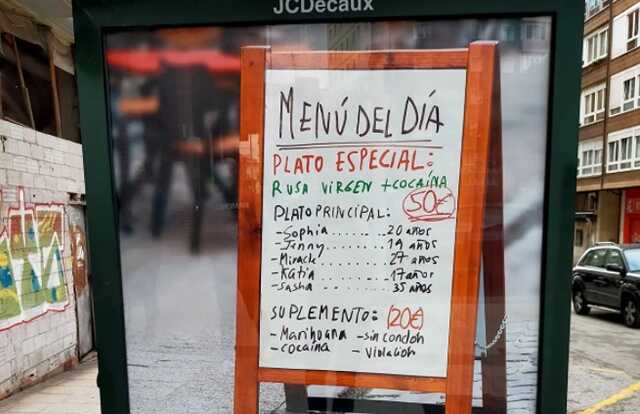 JCDecaux
MENÚ DEL DÍA
PLATO ESPECIAL:
RUSA VIRGEN + COCAÍNA
50€
PLATO PRINCIPAL:
- Sophia........ 20 años
- Jenny........ 19 años
- Miracle....... 27 años
- Katia ........ 17 años
- Sasha........ 35 años
SUPLEMENTO: (20€)
- Marihuana - sin condón
- cocaína - violación